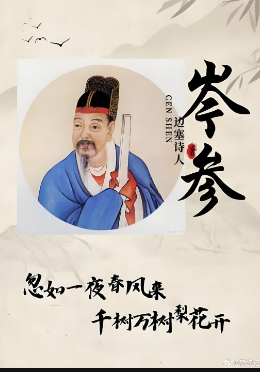 岑参
CEN SHEN
边塞诗人
忽如一夜春风来
千树万树梨花开